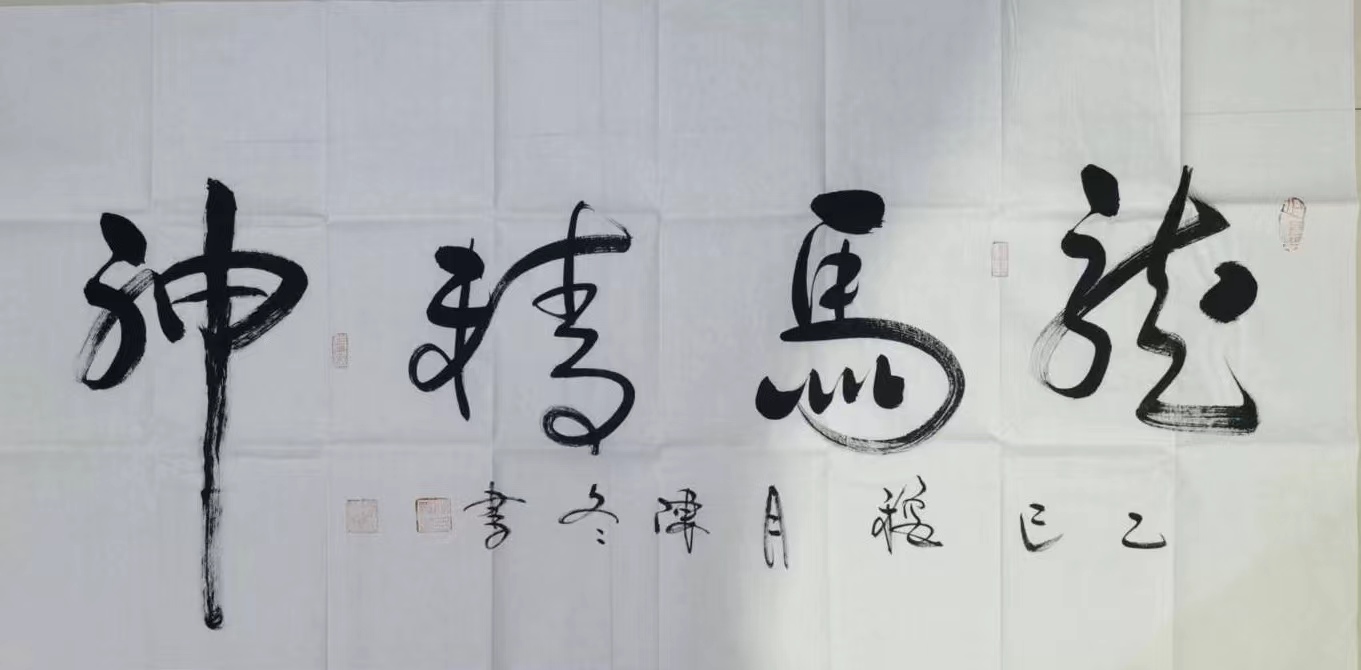 龍馬精神
乙巳月陳冬書